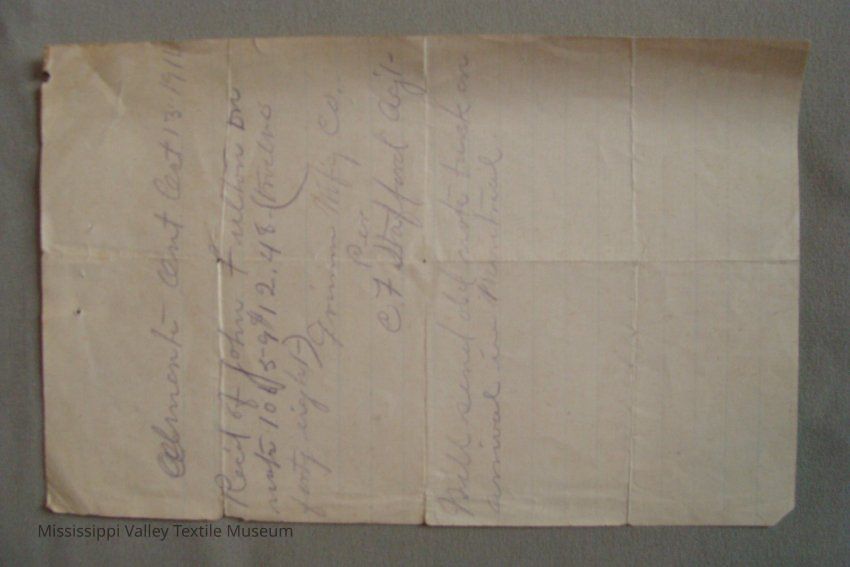 Almonte Ont Oct 13. 191
Rec'd of John Fulton on
note 10659 $12.48 (Twelve
forty eight)
Grimm Mfg Co.
Per
C. F Stafford Agt-
Will send old note back on
arrival in Montreal.
Mississippi Valley Textile Museum